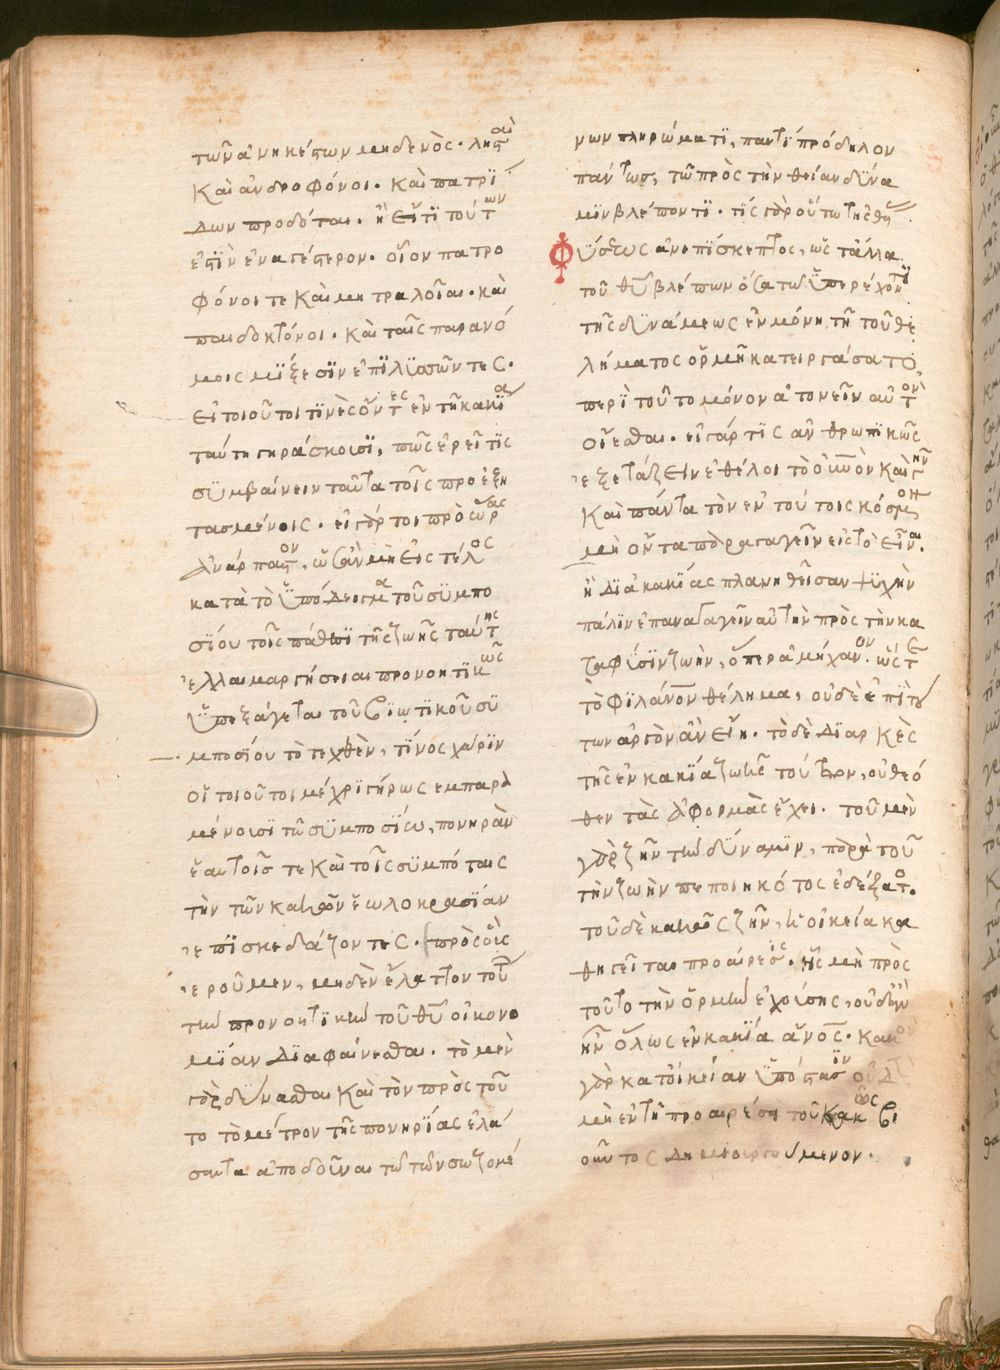 τῶν ἀνηκέστων μηδενὸς· λησταὶ
Καὶ ἀνδροφόνοι. καὶ πατρί
δων προδόται. ἢ εἴ τι τούτων
ἐστὶν ἐναγέστερον. οἷον πατρο
φόνοι τε Καὶ μητραλοῖαι. καὶ
παιδοκτόνοι. Καὶ ταῖς παρανό
μοις μίξεσιν ἐπιλϋσσῶντες.
εἰ τοιοῦτοι τινὲς ὄντες ἐν τῇ κακία
ταύτῃ γηράσκουσϊ, πῶς ἐρεῖ τίς
σϋμβαίνειν ταῦτα τοῖς προεξη
τασμένοις. εἰ γάρ τοι πρὸ ὥρας
ἀνάρπαστον, ὡς ἂν μὴ εἰς τέλος
κατὰ τὸ ὑπόδειγμα τοῦ σϋμπο
σίου τοῖς πάθεσϊ τῆς ζωῆς ταύτης
ἐλλαιμαργήσειαι προνοητϊκῶς
ὑπεξάγεται τοῦ βιωτϊκοῦ σϋ
μποσίου τὸ τεχθὲν, τίνος χάρϊν
οἱ τοιοῦτοι μέχρϊ γήρως ἐμπαρα
μένουσϊ τῷ σϋμποσίῳ, πονηρὰν
ἑαυτοῖς τε Καὶ τοῖς σϋμπόταις
τὴν τῶν κακῶν ἑωλοκρασίαν
ἐπϊσκεδάζοντες. πρὸς οὓς
ἐροῦμεν, μηδὲν ἔλαττον τοῦ
τὴν προνοητϊκὴν τοῦ θῡ οἰκονο
μίαν διαφαίνεσθαι. τὸ μὲν
γὰρ δύνασθαι Καὶ τὸν πρὸς τοῦ
το τὸ μέτρον τῆς πονηρίας ἐλά
σαντα ἀποδοῦναι τῷ τῶν σωζομέ
νων πληρώματϊ, παντὶ πρόδηλον
πάντως, τῷ πρὸς τὴν θείαν δύνα
μϊν βλέποντϊ. τίς γὰρ οὕτω τῆς
Φύσεως ἀνεπίσκεπτος, ὡς τἄλλα
τοῦ θῡ βλέπων ὅσα τῷ ὑπερέχοντϊ
τῆς δυνάμεως ἐν μόνη τῇ τοῦ θε
λήματος ὁρμῇ κατειργάσατο,
περὶ τοῦτο μόνον ἀτονεῖν αὐτὸν
οἴεσθαι. εἰ γάρ τις ἀνθρωπϊκῶς
ἐξετάζειν ἐθέλοι τὸ οὐνὸν Καὶ γῆν
Καὶ πάντα τὸν ἐν τούτοις κόσμον
μὴ ὄντα παραγαγεῖν εἰς τὸ εἶναι.
ἢ διὰ κακίας πλανηθεῖσαν ψϋχὴν
πάλϊν ἐπαναγαγεῖν αὐτὴν πρὸς τὴν κα
τὰ φύσϊν ζωὴν, ὅπερ ἀμήχανον. ὥστε
τὸ φϊλάνον θέλημα, οὐδὲ ἐπὶ
των ἀργὸν ἂν εἴη. τὸ δὲ διαρκὲς
τῆς ἐν κακία ζωῆς τούτων, οὐ θεό
θεν τὰς ἀφορμὰς ἔχει. τοῦ μὲν
γὰρ ζῆν τὴν δύναμϊν, παρὰ τοῦ
τὴν ζωὴν πεποιηκότος ἐδέξατο.
τοῦ δὲ κακῶς ζῆν, ἡ οἰκεία κα
θηγεῖται προαίρεσις. ἧς μὴ πρὸς
τοῦτο τὴν ὁρμὴν ἐχούσης, οὐδὲν
ἦν ὅλως ἐν κακία ἆνος. κακὸν
γὰρ κατ οἰκείαν ὑπόστασϊν οὐδὲ
μὴ ἐν τῇ προαιρέσει τοῦ κακῶς βι
οῦντος δημϊουργούμενον.